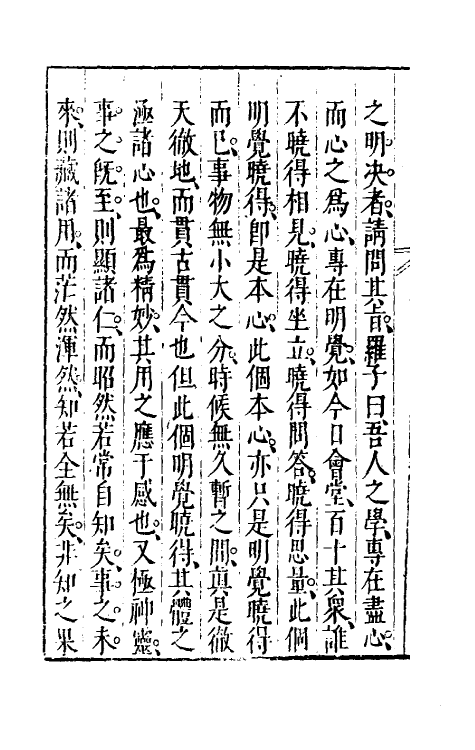 之明决者、請問其旨。羅子曰吾人之學、專在盡心、
而心之爲心、專在明覺。如今日會堂、百十其衆、誰
不曉得相見、曉得坐立、曉得問答、曉得思量。此個
明覺曉得、卽是本心。此個本心、亦只是明覺曉得
而已。事物無小大之分、時候無久暫之間。眞是徹
天徹地、而貫古貫今也但此個明覺曉得、其體之
極諸心也、最爲精妙、其用之應于感也、又極神靈、
事之旣至、則顯諸仁、而昭然若常自知矣。事之未
來、則藏諸用、而茫然渾然、知若全無矣、非知之果